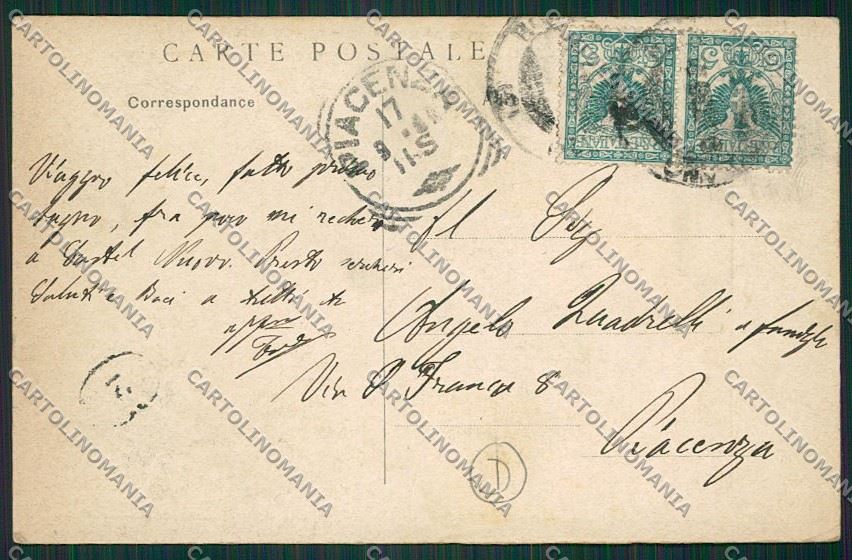 CARTE POSTALE
Correspondance
PIACENZA
17
Viaggio felice, fatto primo
bagno, fra poco mi recherò
a Castel Nuovo. Presto
Saluti e Baci a tutti
Al Sig
Angelo Quadrelli e famiglia
Via S Franca 8
Piacenza
D
5
5
CARTOLINOMANIA